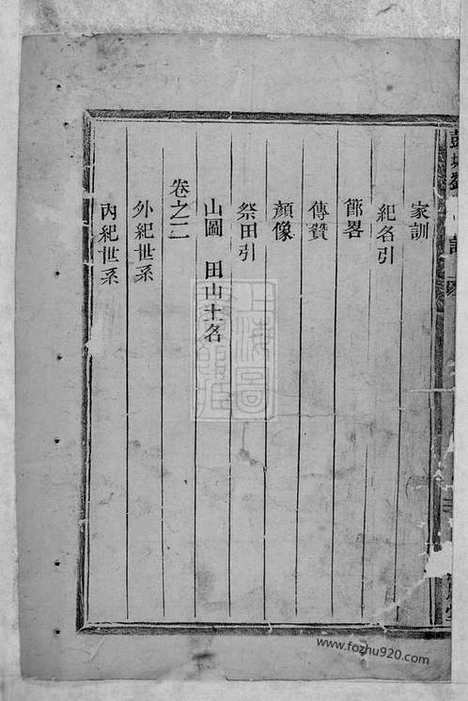 家訓
紀名引
節畧
傳贊
顏像
祭田引
山圖　田山土名
卷之二
外紀世系
內紀世系
www.fozhu920.com